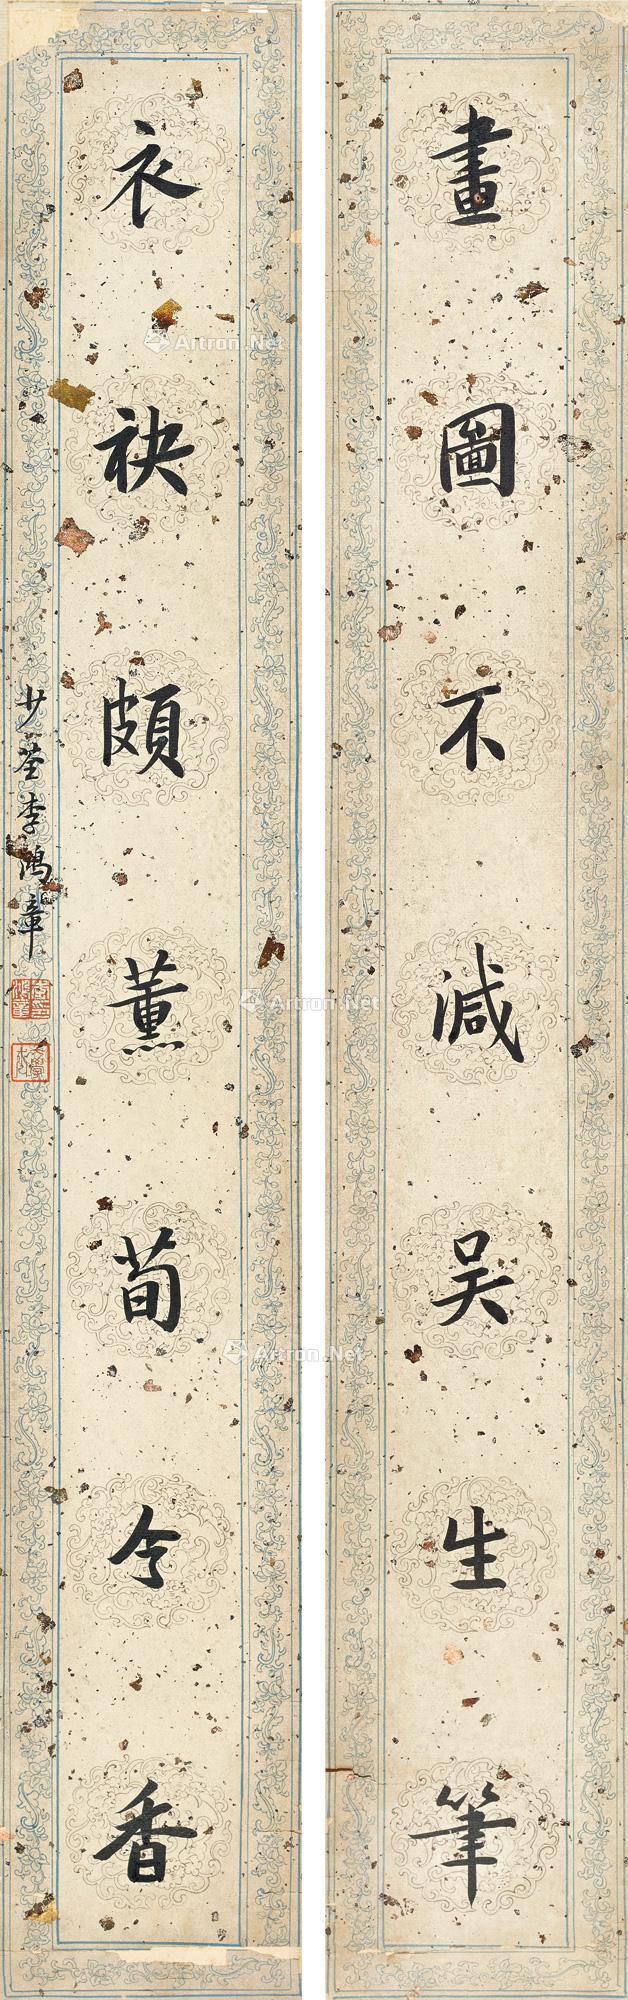 畫圖不減吳生筆
衣袂頗薰荀令香
少荃李鴻章
Artron.Net
Artron.Net
Artron.Net